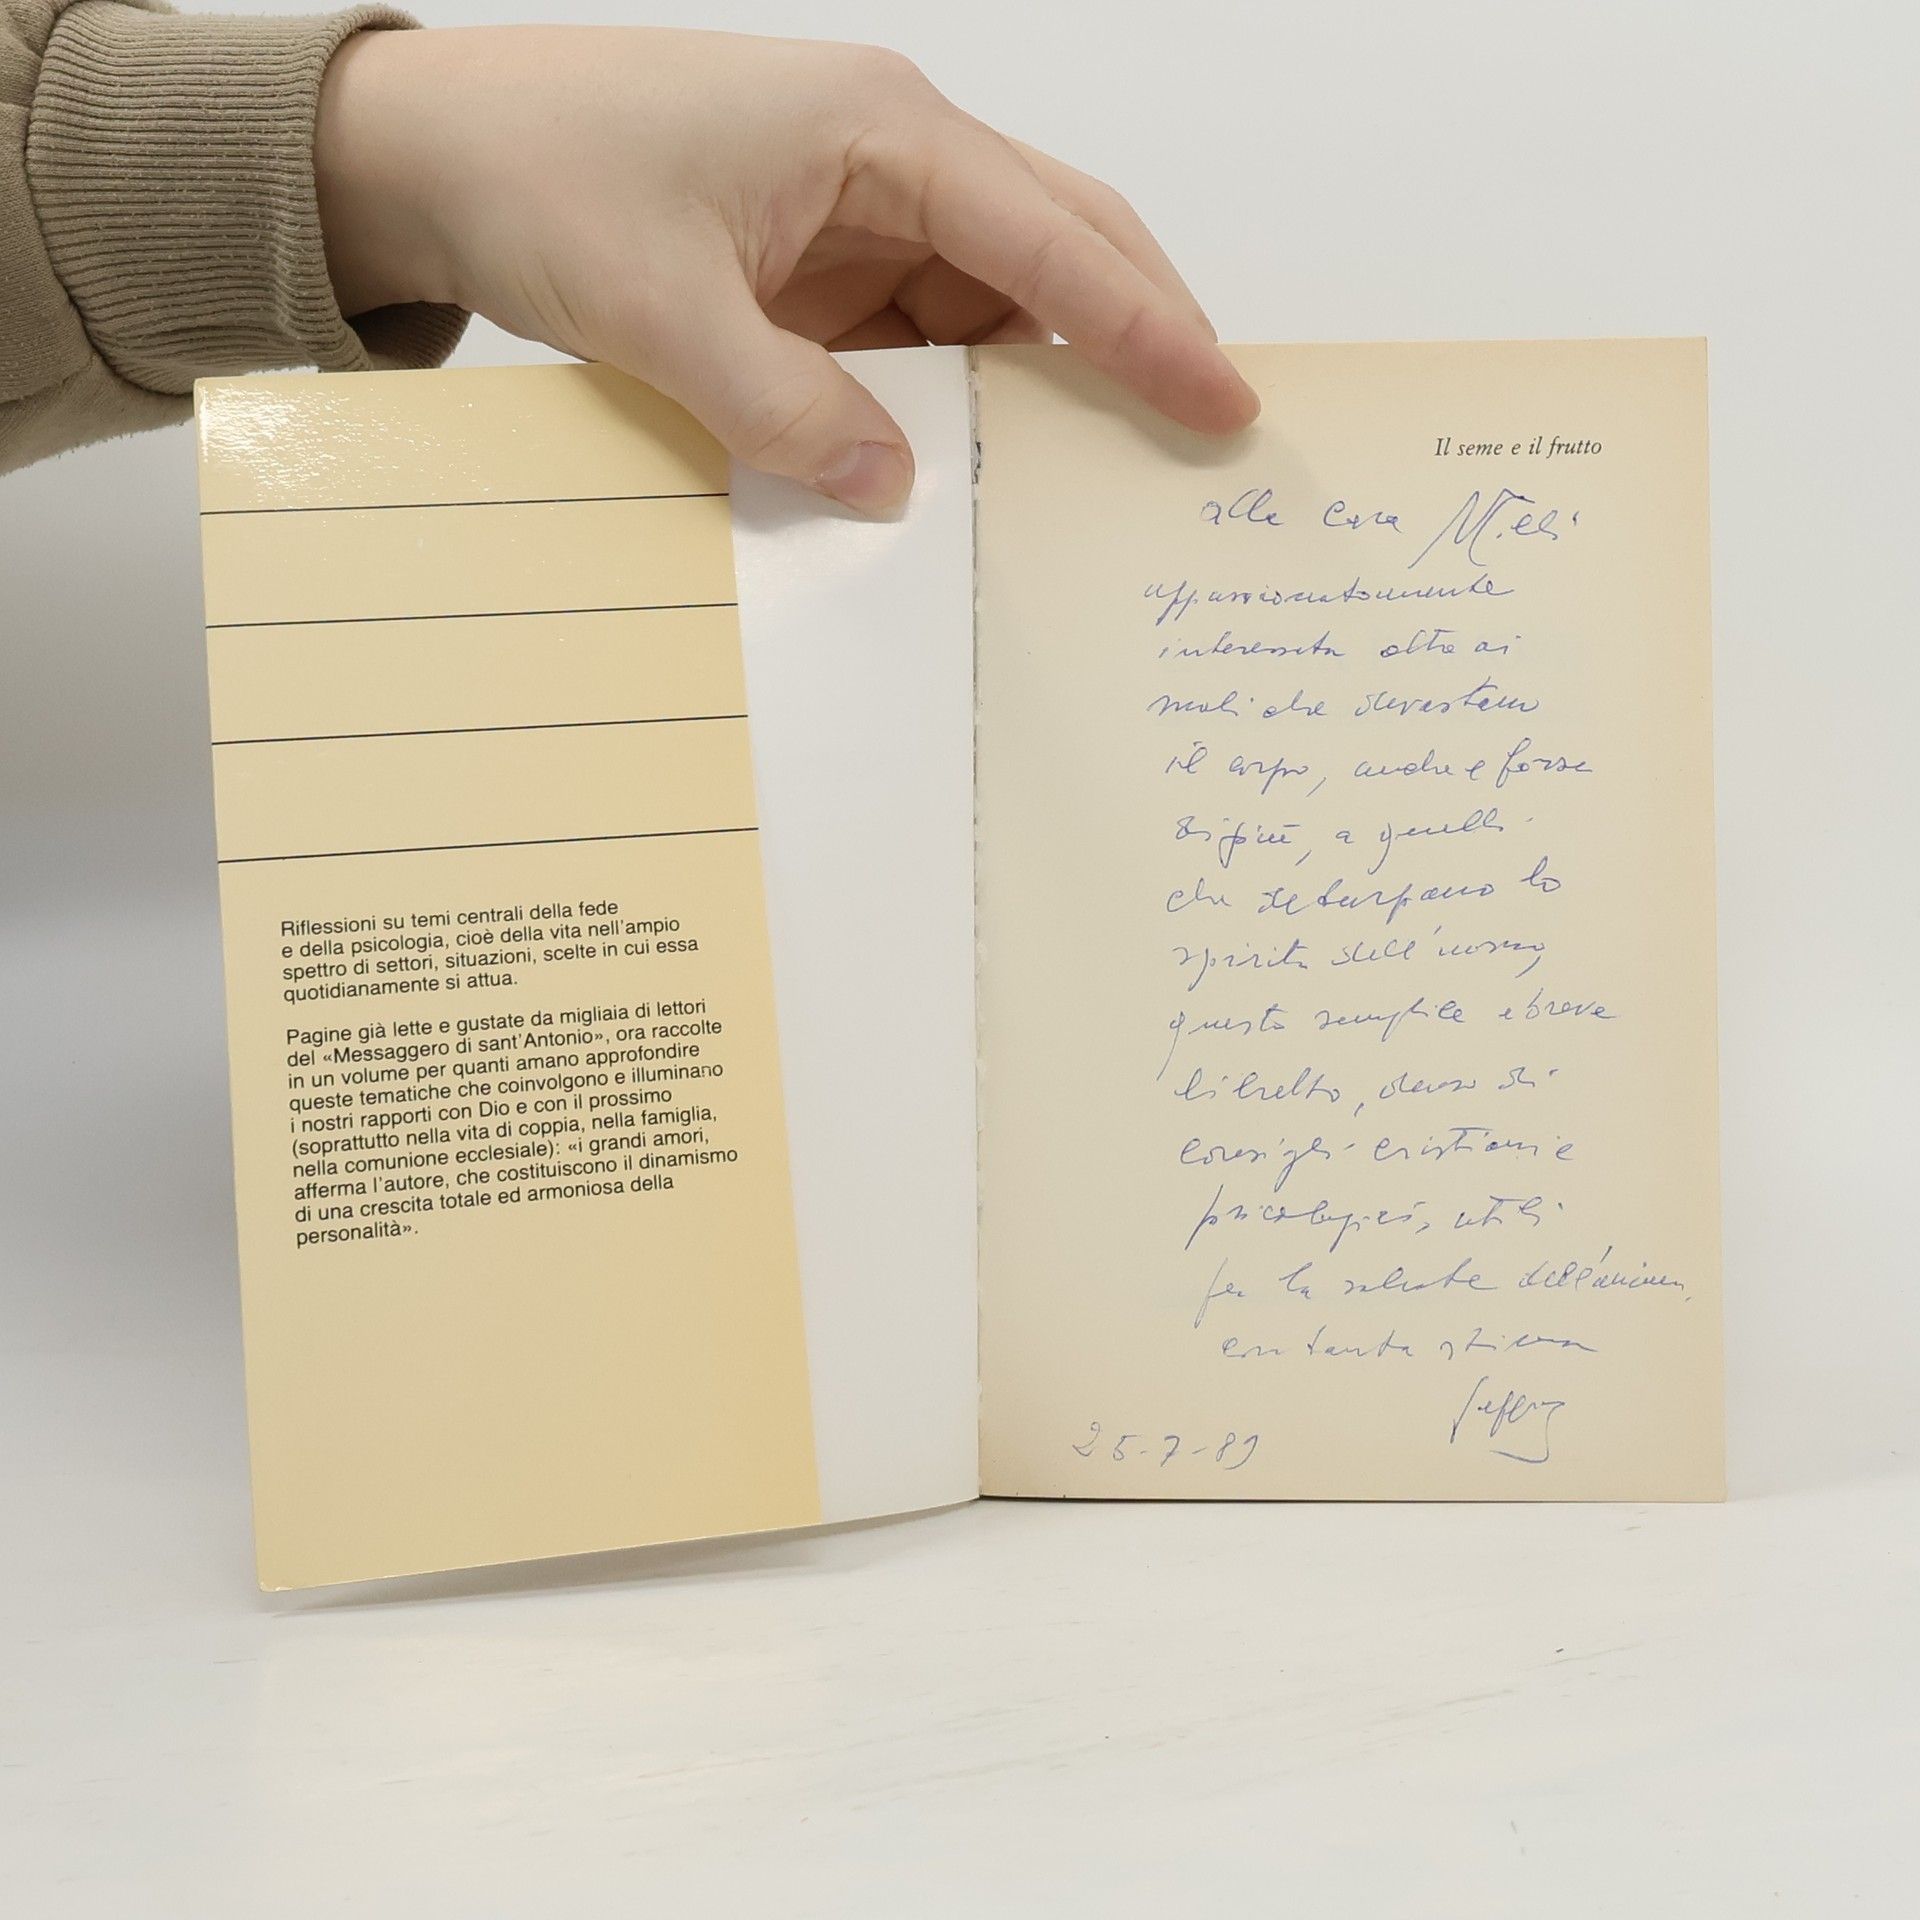 Riflessioni su temi centrali della fede
e della psicologia, cioè della vita nell'ampio
spettro di settori, situazioni, scelte in cui essa
quotidianamente si attua.
Pagine già lette e gustate da migliaia di lettori
del «Messaggero di sant'Antonio», ora raccolte
in un volume per quanti amano approfondire
queste tematiche che coinvolgono e illuminano
i nostri rapporti con Dio e con il prossimo
(soprattutto nella vita di coppia, nella famiglia,
nella comunione ecclesiale): «i grandi amori,
afferma l'autore, che costituiscono il dinamismo
di una crescita totale ed armoniosa della
personalità».
Il seme e il frutto
alla cara
appassionatamente
interessata oltre ai
mali che devastano
il corpo, anche e forse
di più, a quelli
che deturpano lo
spirito dell'uomo,
questo semplice e breve
libretto, denso di
consigli cristiani e
psicologici, utili
per la salute dell'anima,
con tanta stima
25-7-89